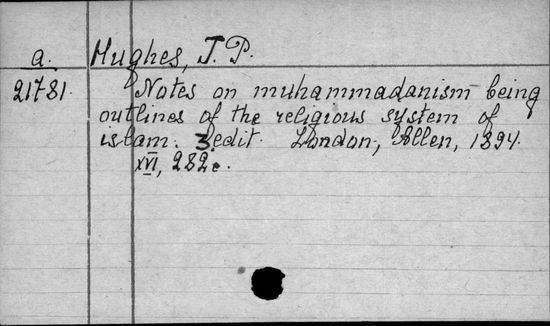 a. Hughes, T. P.
21781. Notes on muhammadanism being
outlines of the religious system of
islam. 3 edit. London, Allen, 1894.
XVI, 282 e.